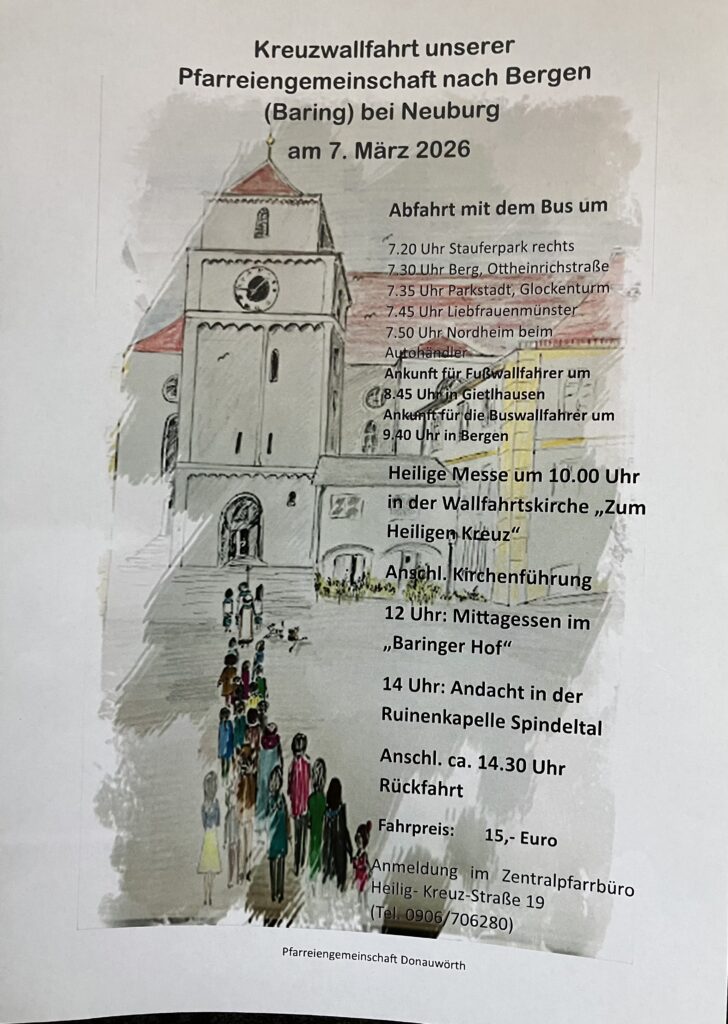 Kreuzwallfahrt unserer
Pfarreiengemeinschaft nach Bergen
(Baring) bei Neuburg
am 7. März 2026
Abfahrt mit dem Bus um
7.20 Uhr Stauferpark rechts
7.30 Uhr Berg, Ottheinrichstraße
7.35 Uhr Parkstadt, Glockenturm
7.45 Uhr Liebfrauenmünster
7.50 Uhr Nordheim beim
Autohändler
Ankunft für Fußwallfahrer um
8.45 Uhr in Gietlhausen
Ankunft für die Buswallfahrer um
9.40 Uhr in Bergen
Heilige Messe um 10.00 Uhr
in der Wallfahrtskirche „Zum
Heiligen Kreuz“
Anschl. Kirchenführung
12 Uhr: Mittagessen im
„Baringer Hof“
14 Uhr: Andacht in der
Ruinenkapelle Spindeltal
Anschl. ca. 14.30 Uhr
Rückfahrt
Fahrpreis: 15,- Euro
Anmeldung im Zentralpfarrbüro
Heilig- Kreuz-Straße 19
(Tel. 0906/706280)
Pfarreiengemeinschaft Donauwörth